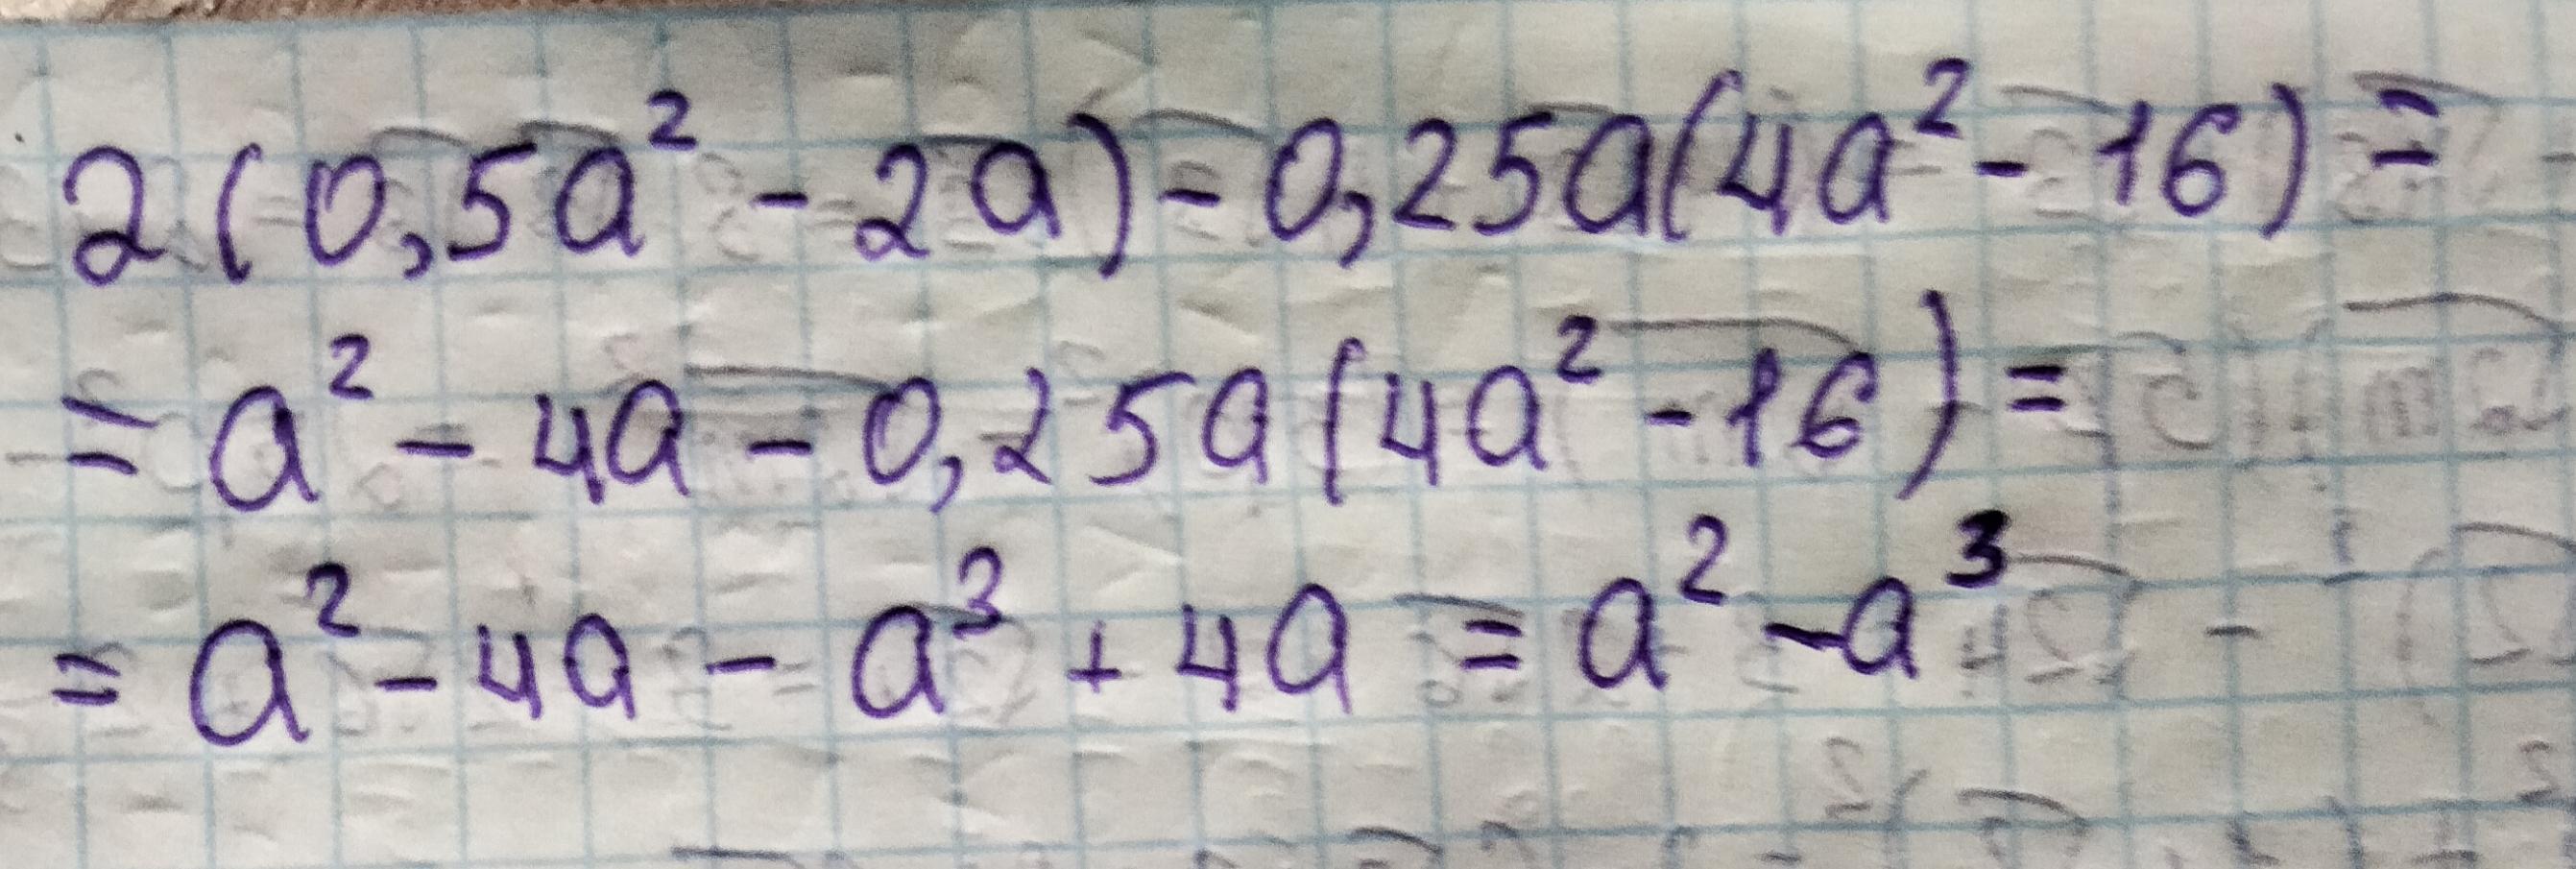 2(0,5a² - 2a) - 0,25a(4a² - 16) =
= a² - 4a - 0,25a(4a² - 16) =
= a² - 4a - a³ + 4a = a² - a³